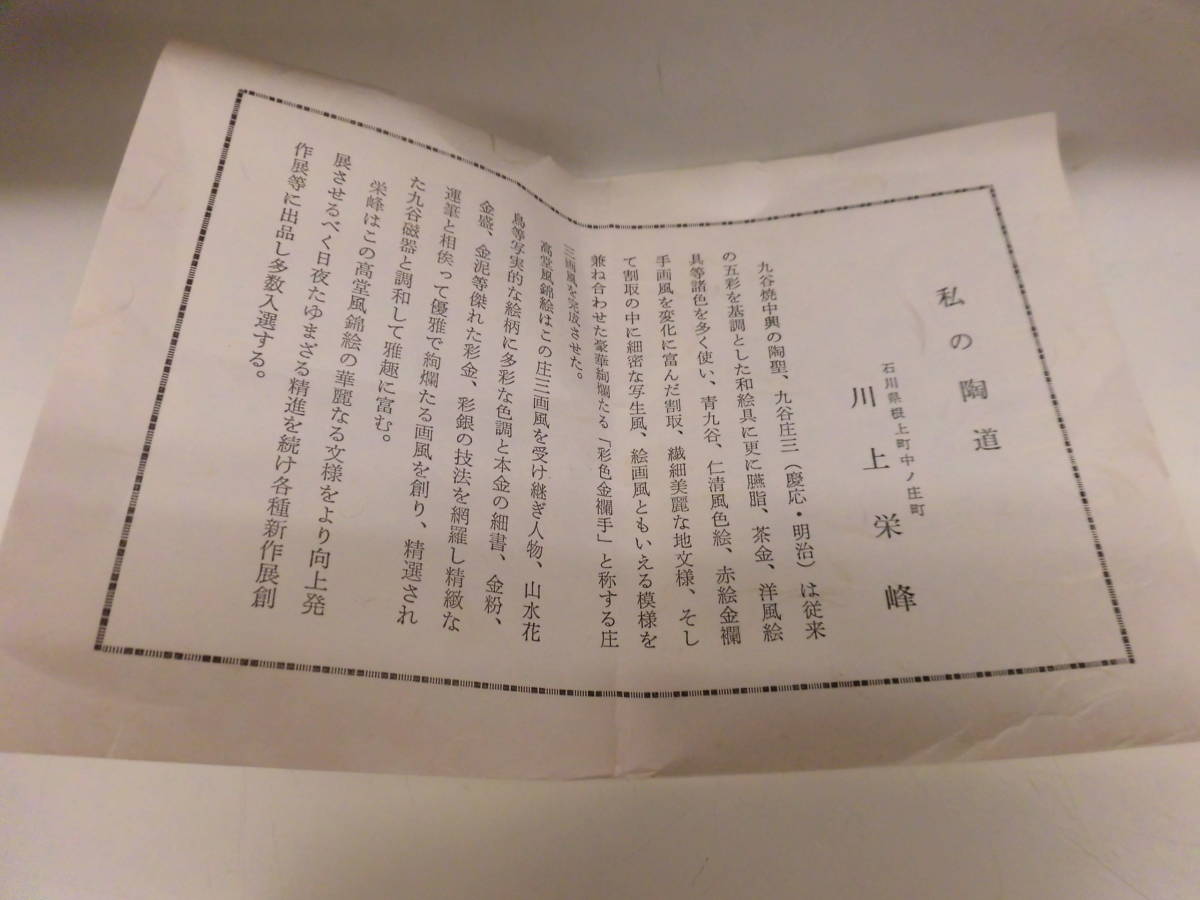 私の陶道
石川県根上町中ノ庄町
川上栄峰
九谷焼中興の陶聖、九谷庄三（慶応・明治）は従来
の五彩を基調とした和絵具に更に臙脂、茶金、洋風絵
具等諸色を多く使い、青九谷、仁清風色絵、赤絵金襴
手画風を変化に富んだ割取、繊細美麗な地文様、そし
て割取の中に細密な写生風、絵画風ともいえる模様を
兼ね合わせた豪華絢爛たる「彩色金襴手」と称する庄
三画風を完成させた。
高堂風錦絵はこの庄三画風を受け継ぎ人物、山水花
鳥等写実的な絵柄に多彩な色調と本金の細書、金粉、
金盛、金泥等傑れた彩金、彩銀の技法を網羅し精緻な
運筆と相俟って優雅で絢爛たる画風を創り、精選され
た九谷磁器と調和して雅趣に富む。
栄峰はこの高堂風錦絵の華麗なる文様をより向上発
展させるべく日夜たゆまざる精進を続け各種新作展創
作展等に出品し多数入選する。